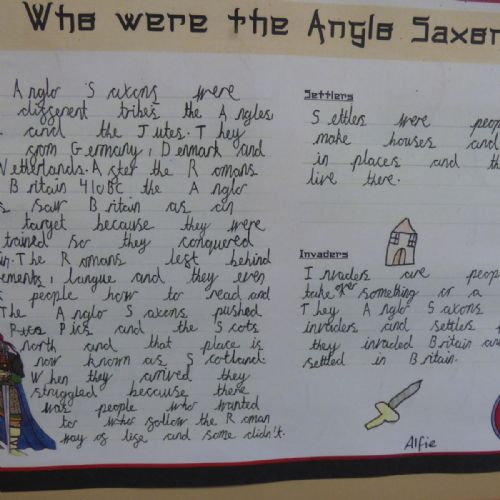 Who were the Anglo Saxon
Anglo Saxons were
different tribes the Angles
and the Jutes. They
from Germany, Denmark and
Netherlands. After the Romans
Britain 410BC the Anglo
saw Britain as an
target because they were
trained so they conquered
The Romans left behind
langue and they even
people how to read and
The Anglo Saxons pushed
Pics and the Scots
north and that place is
now known as Scotland.
When they arrived they
struggled because there
was people who wanted
to who follow the Roman
way of life and some didn't.
Settlers
Settles were peop
make houses and
in places and th
live there.
Invaders
Invaders are peop
take over something or a
They Anglo Saxons
invaders and settlers
they invaded Britain an
settled in Britain.
Alfie